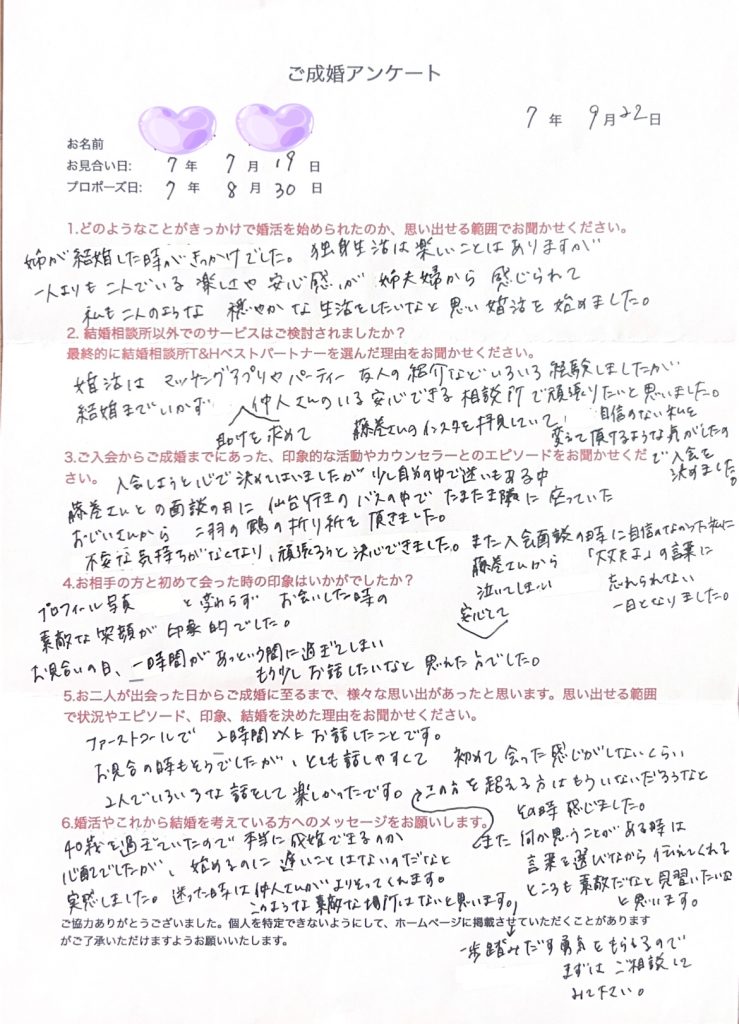 ご成婚アンケート
7 年 9月22日
お名前
お見合い日: 7 年 7 月 19 日
プロポーズ日: 7 年 8 月 30 日
1.どのようなことがきっかけで婚活を始められたのか、思い出せる範囲でお聞かせください。
姉が結婚した時がきっかけでした。独身生活は楽しいことはありますが
一人よりも二人でいる楽しさや安心感が姉夫婦から感じられて
私も二人のような穏やかな生活をしたいなと思い婚活を始めました。
2. 結婚相談所以外でのサービスはご検討されましたか？
最終的に結婚相談所T&Hベストパートナーを選んだ理由をお聞かせください。
婚活はマッチングアプリやパーティー友人の紹介などいろいろ経験しましたが
結婚までいかず 仲人さんのいる安心できる相談所で頑張りたいと思いました。
助けを求めて 藤巻さんのインスタを拝見していて、自信のない私を
変えて頂けるような気がしたの
で入会を
決めました。
3.ご入会からご成婚までにあった、印象的な活動やカウンセラーとのエピソードをお聞かせくだ
さい。 入会しようと心で決めてはいましたが少し自分の中で迷いもある中
藤巻さんとの面談の日に仙台行きのバスの中でたまたま隣に座っていた
おじいさんから二羽の鶴の折り紙を頂きました。
不安な気持ちがなくなり、頑張ろうと決心できました。また入会面談の時に自信のなかった私に
藤巻さんから「大丈夫よ」の言葉に
安心して
泣いてしまい 忘れられない
一日となりました。
4.お相手の方と初めて会った時の印象はいかがでしたか？
プロフィール写真 と変わらず お会いした時の
素敵な笑顔が印象的でした。
お見合いの日、一時間があっという間に過ぎてしまい
もう少しお話したいなと思れた方でした。
5.お二人が出会った日からご成婚に至るまで、様々な思い出があったと思います。思い出せる範囲
で状況やエピソード、印象、結婚を決めた理由をお聞かせください。
ファーストコールで 2時間以上お話したことです。
お見合の時もそうでしたが、とても話しやすくて 初めて会った感じがしないくらい
2人でいろいろな話をして楽しかったです。この方を超える方はもういないだろうなと
その時感じました。
また何か思うことがある時は
言葉を選びながら伝えてくれる
ところも素敵だなと見習いたいな
と思います。
6.婚活やこれから結婚を考えている方へのメッセージをお願いします。
40歳を過ぎていたので本当に成婚できるのか
心配でしたが、始めるのに遅いことはないのだなと
実感しました。迷った時は仲人さんがよりそってくれます。
このような素敵な場所はないと思います。
一歩踏みだす勇気をもらえるので
まずはご相談して
みて下さい。
ご協力ありがとうございました。個人を特定できないようにして、ホームページに掲載させていただくことがあります
がご了承いただけますようお願いいたします。